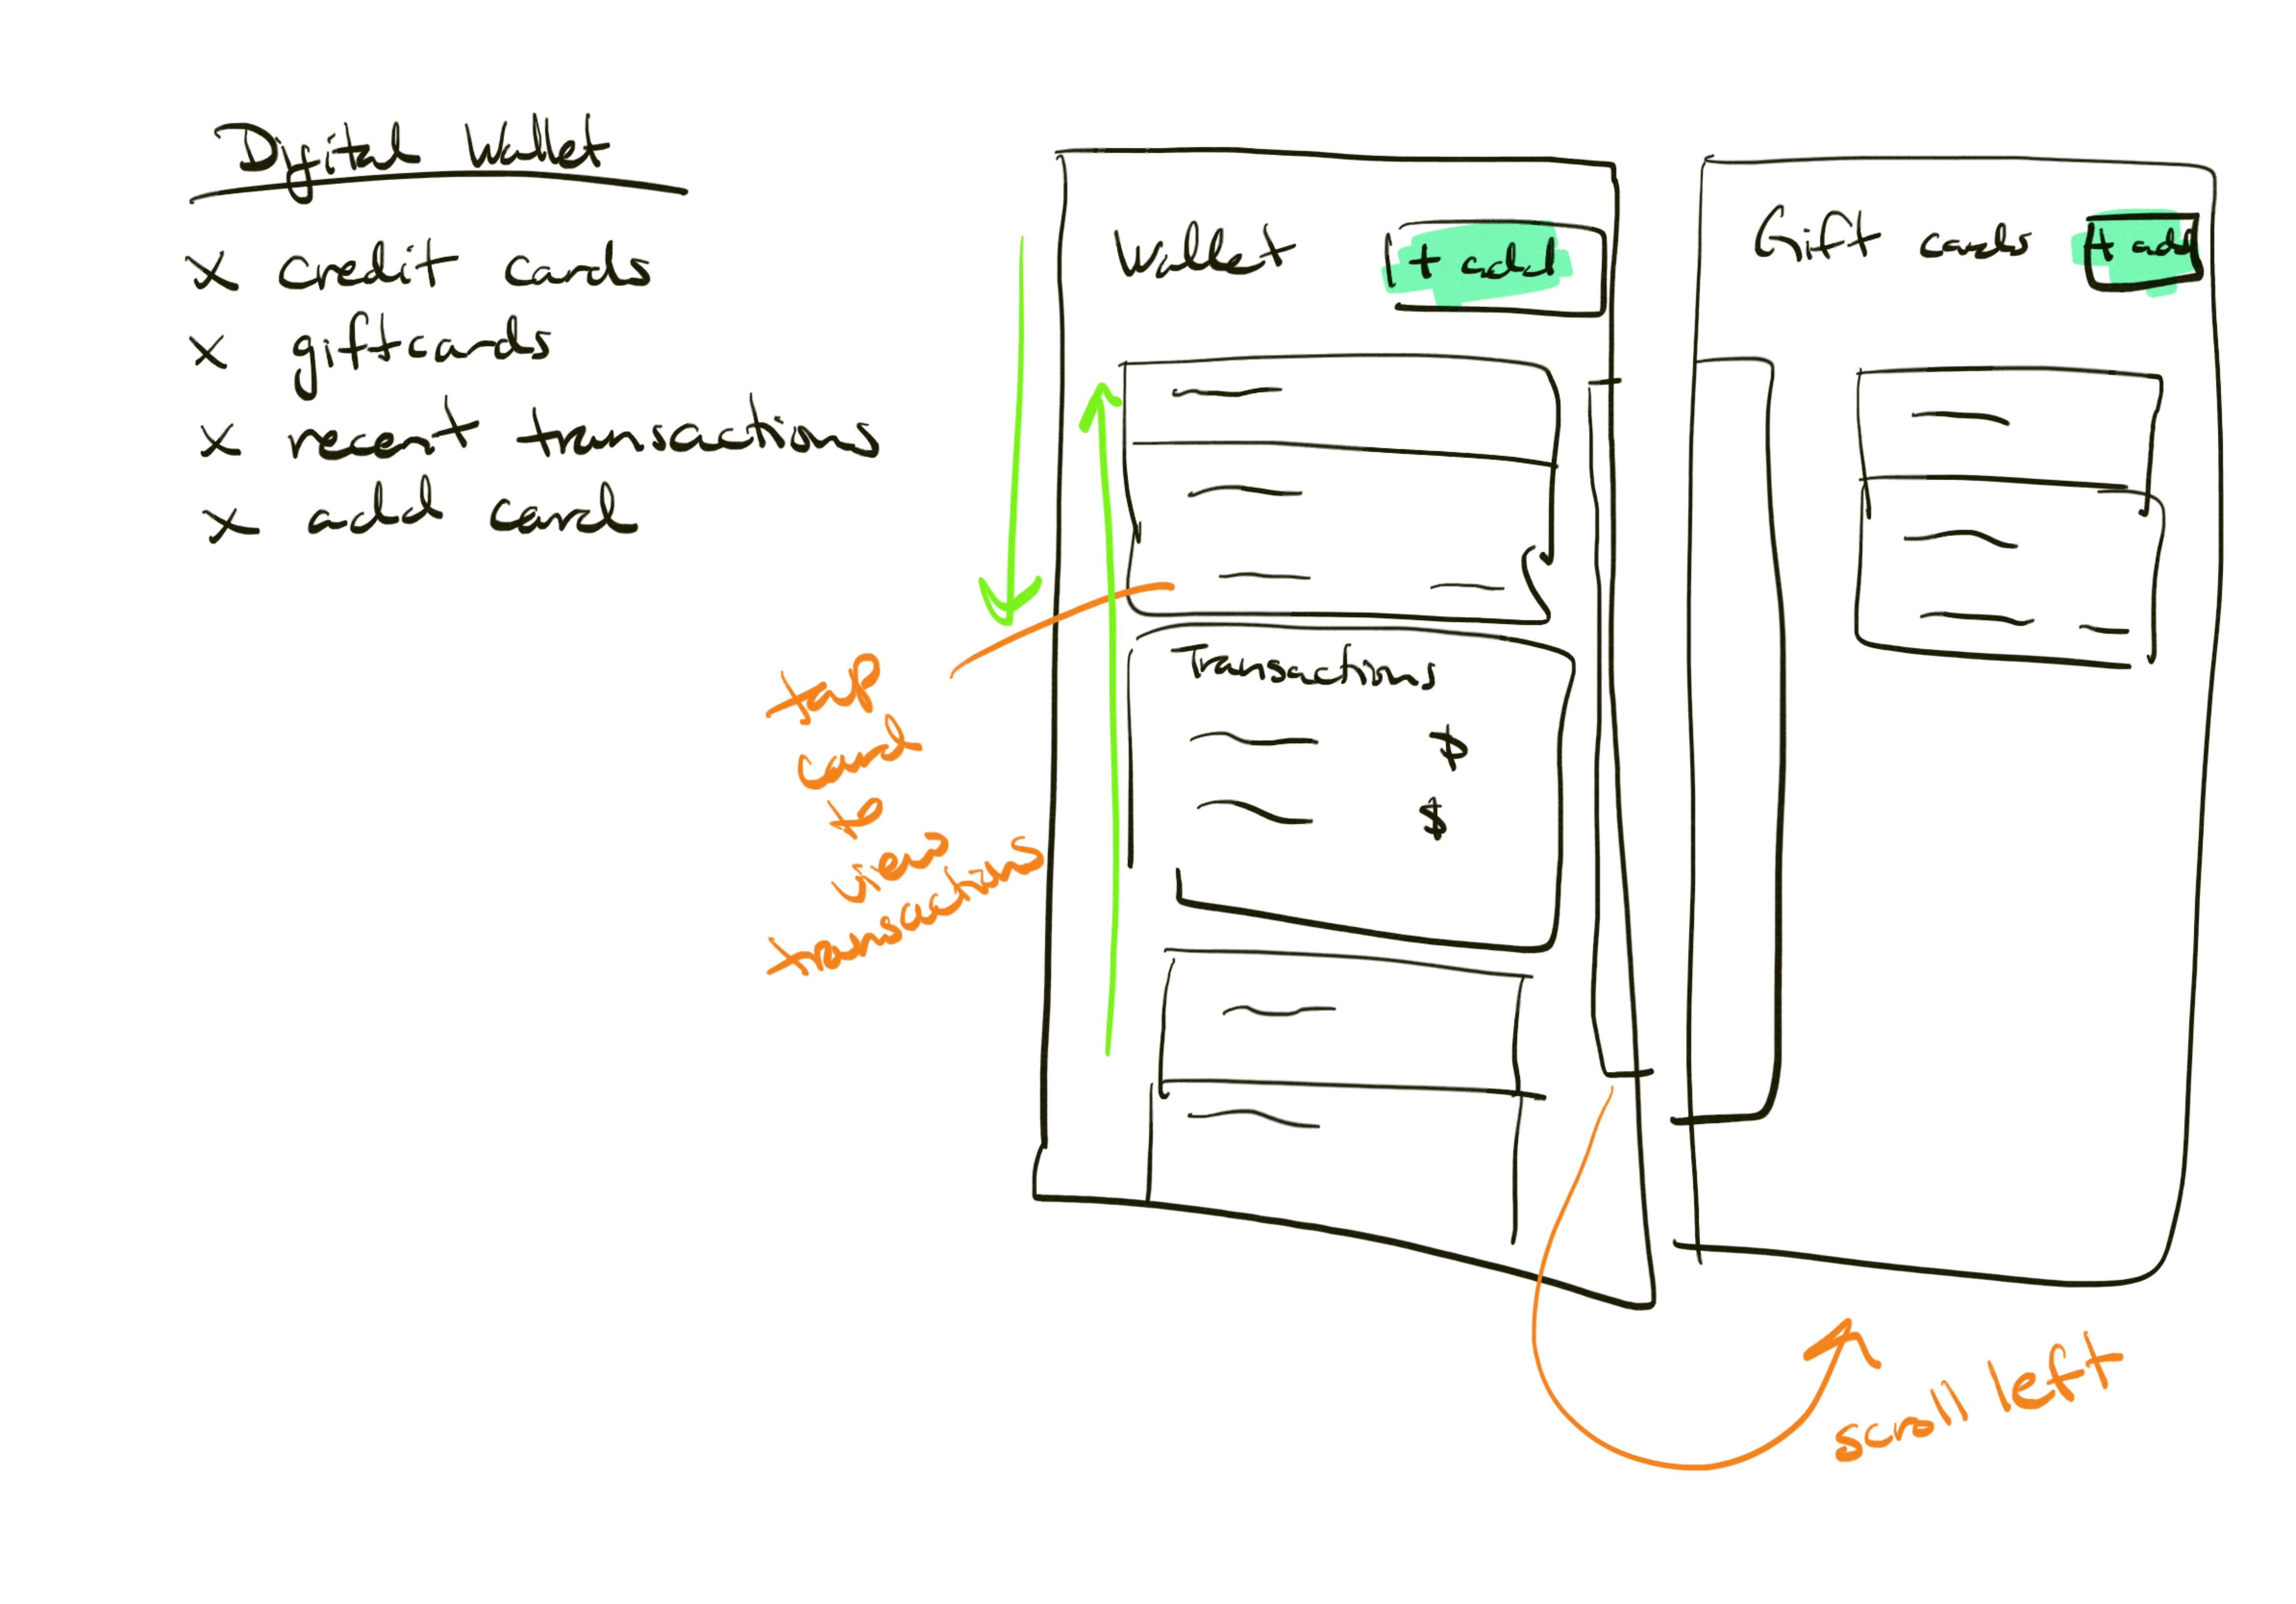 Digital Wallet
x credit cards
x giftcards
x recent transactions
x add card
Wallet
+ add
Transactions
$
$
tap
card
to
view
transactions
Gift cards
+ add
scroll left